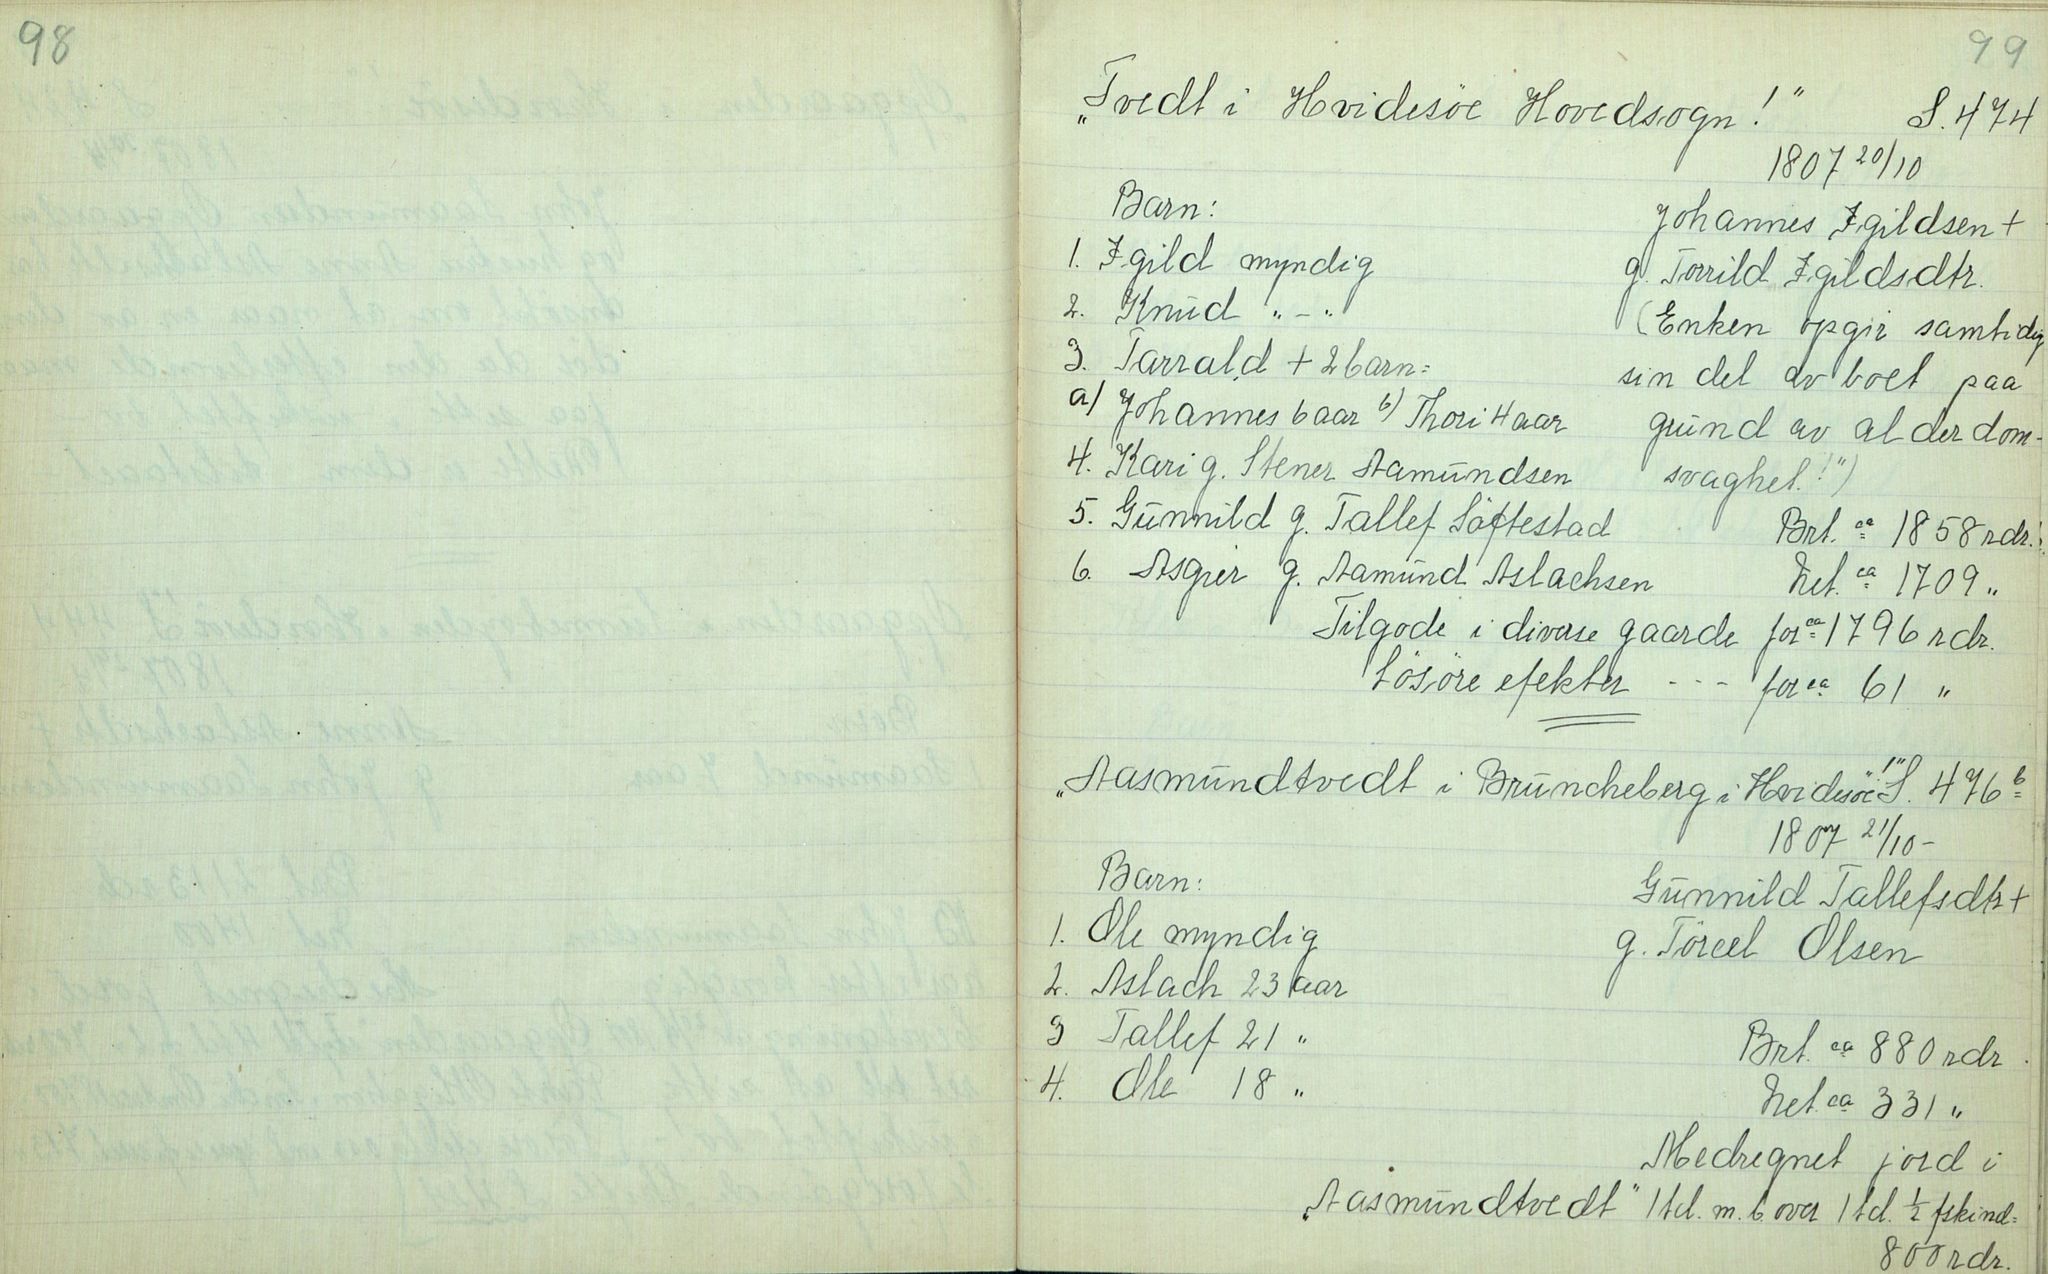 98
99
"Tvedt i Hvidesöe Hovedsogn!" S. 474
1807 20/10
Barn:
Johannes Igildsen +
1. Igild myndig
g. Torrild Igildsdtr.
2. Knud " - "
(Enken opgir samtidig
3. Tarrald + 2 barn:
sin del av boet paa
a) Johannes 6 aar b) Thori 4 aar
grund av alderdom-
4. Kari g. Stener Aamundsen
svaghet!")
5. Gunnild g. Tallef Löftestad
Brt. ca 1858 rdr.
6. Asgier g. Aamund Aslachsen
Net. ca 1709 "
Tilgode i diverse gaarde for ca 1796 rdr.
Lösöre efekter - - - for ca 61 "
"Aasmundtvedt i Bruncheberg i Hvidesöe!" S. 476 b
1807 21/10 -
Barn:
Gunnild Tallefsdtr +
1. Ole myndig
g. Törcel Olsen
2. Aslach 23 aar
3 Tallef 21 "
Brt. ca 880 rdr.
4. Ole 18 "
Net. ca 331 "
Medregnet jord i
"Aasmundtvedt" 1 td. m. b. over 1 td. 1/2 fskind=
800 rdr.